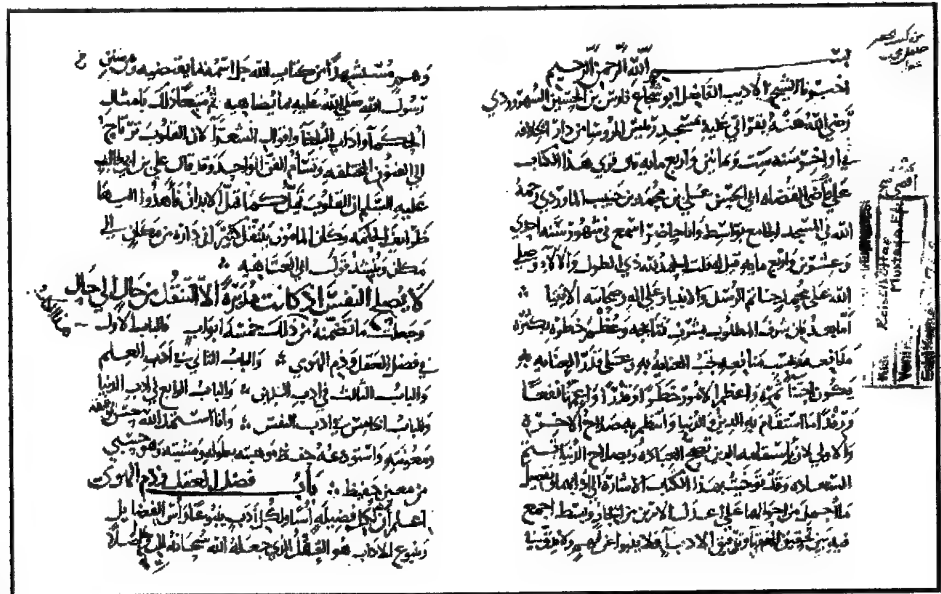 بسم الله الرحمن الرحيم
الشيخ الاديب الفاضل ابو شجاع فارس بن الحسين السهروردي
رضي الله عنه بقراتي عليه بمسجد رئيس الروسا من دار الخلافه
في اواخر سنه ست وثمانين واربع مايه قال قرئ هذا الكتاب
علي اقضي القضاه ابي الحسن علي بن محمد بن حبيب الماوردي رحمه
الله في المسجد الجامع بواسط اسمع في شهور سنه احدي
وعشرين واربع مايه قيل له قلت الحمد لله ذي الطول والالا وصلي
الله علي محمد خاتم الرسل والانبيا وعلي اله وصحابته الاتقيا
اما بعد فان شرف المطلوب بشرف نتايجه وعظم خطره بكثره
منافعه وبحسب منافعه تجب العنايه به وعلي قدر العنايه به
يكون اجتنا ثمره واعظم الامور خطرا وقدرا واعمها نفعا
ورفدا ما استقام به الدين والدنيا وانتظم به صلاح الاخره
والاولي لان باستقامه الدين تصح العباده وبصلاح الدنيا تتم
السعاده وقد توخيت بهذا الكتاب الاشاره الي ادابهما وتفصيل
ما اجمل من احوالهما علي اعدل الامرين من ايجاز وبسط اجمع
فيه بين تحقيق الفقها وترقيق الادبا فلا ينبوا عن فهم ولا يدق
مستشهدا من كتاب الله جل اسمه بما يقتضيه ومن سنن
رسول الله صلي الله عليه بما يضاهيه ثم متبعا ذلك بامثال
الحكما واداب البلغا واقوال الشعرا لان القلوب ترتاح
الي الفنون المختلفه وتسأم الفن الواحد وقد قال علي بن ابي طالب
عليه السلم ان القلوب تمل كما تمل الابدان فاهدوا اليها
طرايف الحكمه وكان المامون ينتقل كثيرا في داره من مكان الي
مكان وينشد قول ابي العتاهيه
لا يصلح النفس اذ كانت مدبره الا التنقل من حال الي حال
وجعلت ما تضمنه من ذلك خمسه ابواب فالباب الاول
في فضل العقل وذم الهوي والباب الثاني في ادب العلم
والباب الثالث في ادب الدين والباب الرابع في ادب الدنيا
والباب الخامس في ادب النفس وانا استمد الله حسن
ومعونته واستودعه حفظ موهبته بطوله ومشيته وهو حسبي
من معين وحفيظ باب فضل العقل وذم الهوي
اعلم ان لكل فضيله اسا ولكل ادب ينبوعا واس الفضايل
وينبوع الاداب هو العقل الذي جعله الله سبحانه
Reisülküttap
Mustafa Ef